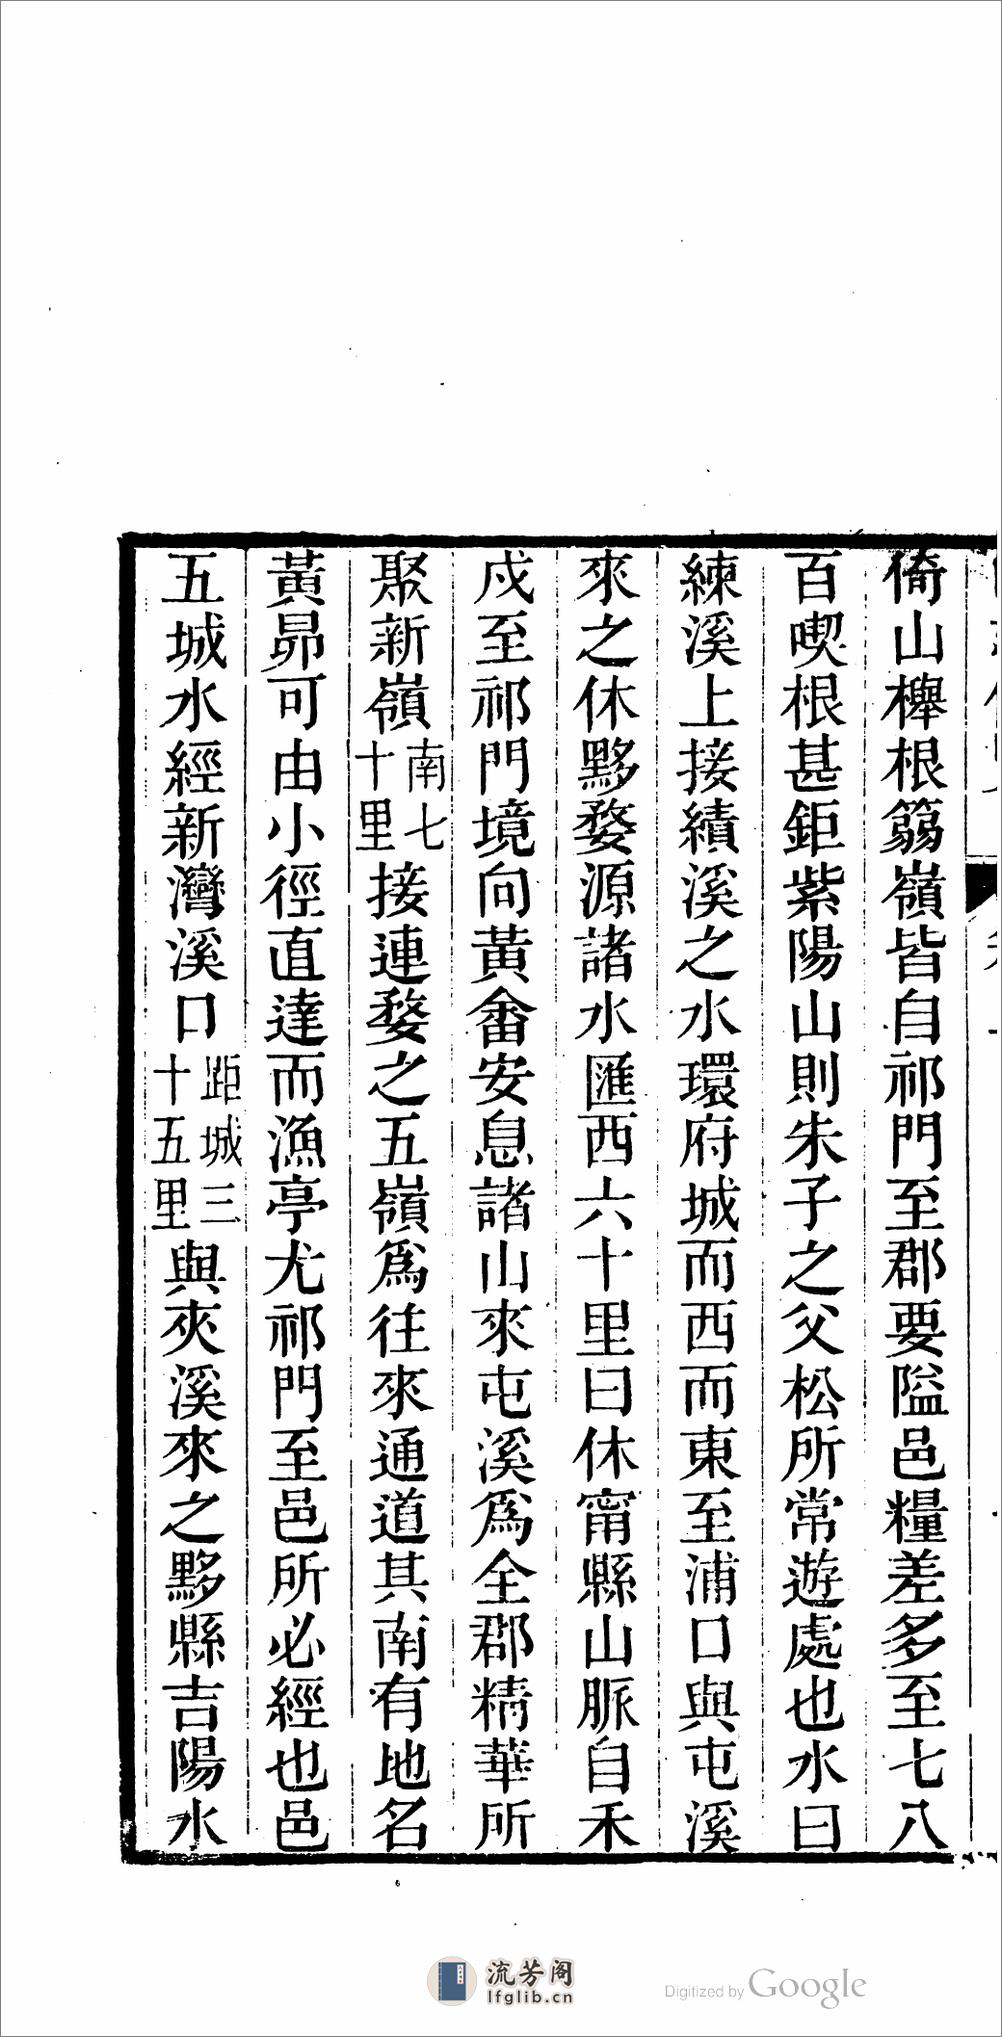 倚山櫸根篛嶺皆自祁門至郡要隘邑糧差多至七八
百喫根甚鉅紫陽山則朱子之父松所常遊處也水曰
練溪上接績溪之水環府城而西而東至浦口與屯溪
來之休黟婺源諸水匯西六十里曰休甯縣山脈自禾
戍至祁門境向黃畬安息諸山來屯溪爲全郡精華所
聚新嶺南七十里接連婺之五嶺爲往來通道其南有地名
黃昴可由小徑直達而漁亭尤祁門至邑所必經也邑
五城水經新灣溪口距城三十五里與夾溪來之黟縣吉陽水
流芳阁
lfglib.cn
Digitized by Google